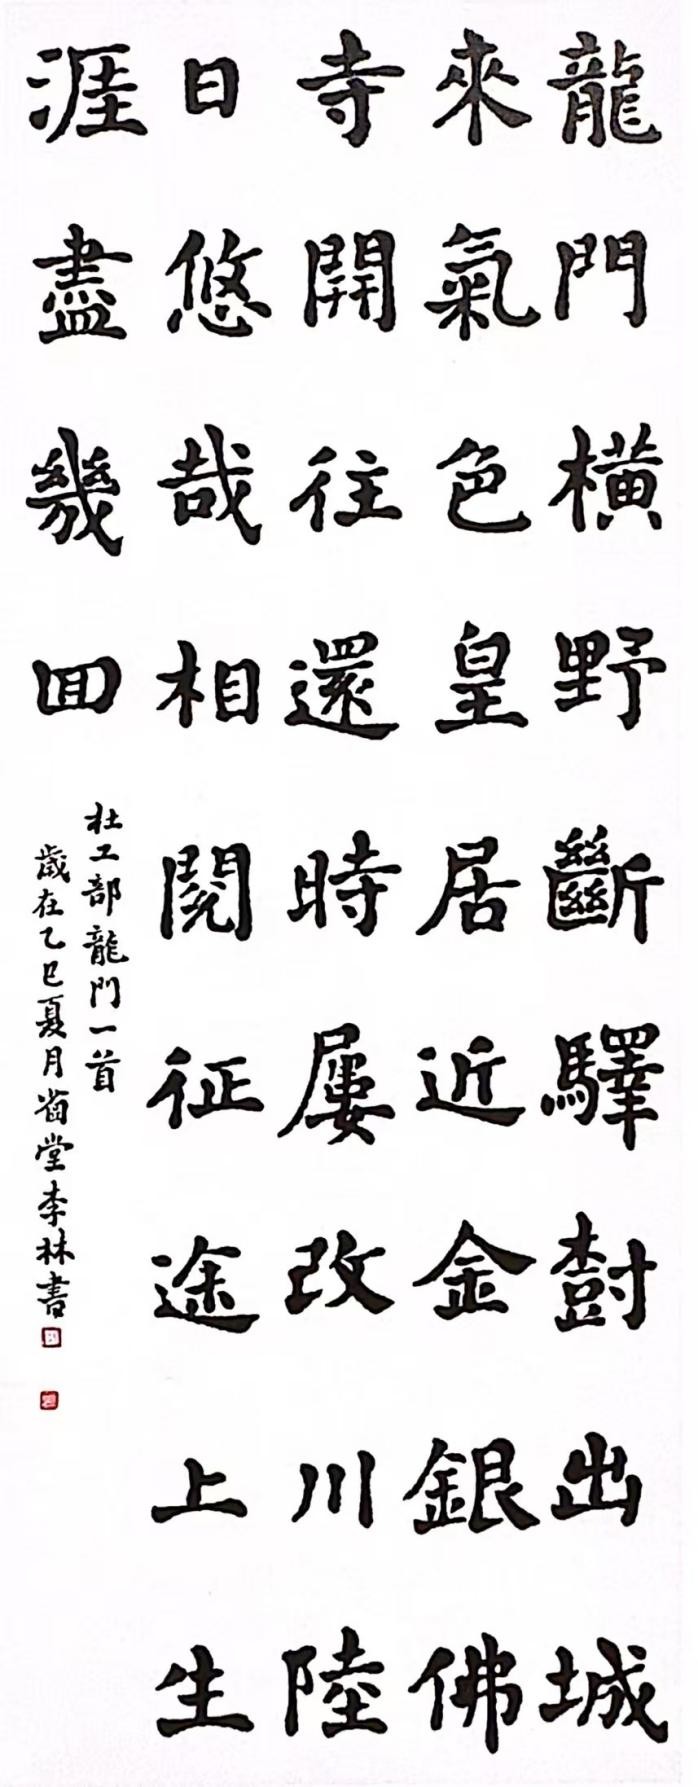 龍門橫野斷驛樹出城
來氣色皇居近金銀佛
寺開往還時屢改川陸
日悠哉相閱征途上生
涯盡幾回
杜工部龍門一首
歲在乙巳夏月齒堂李林書